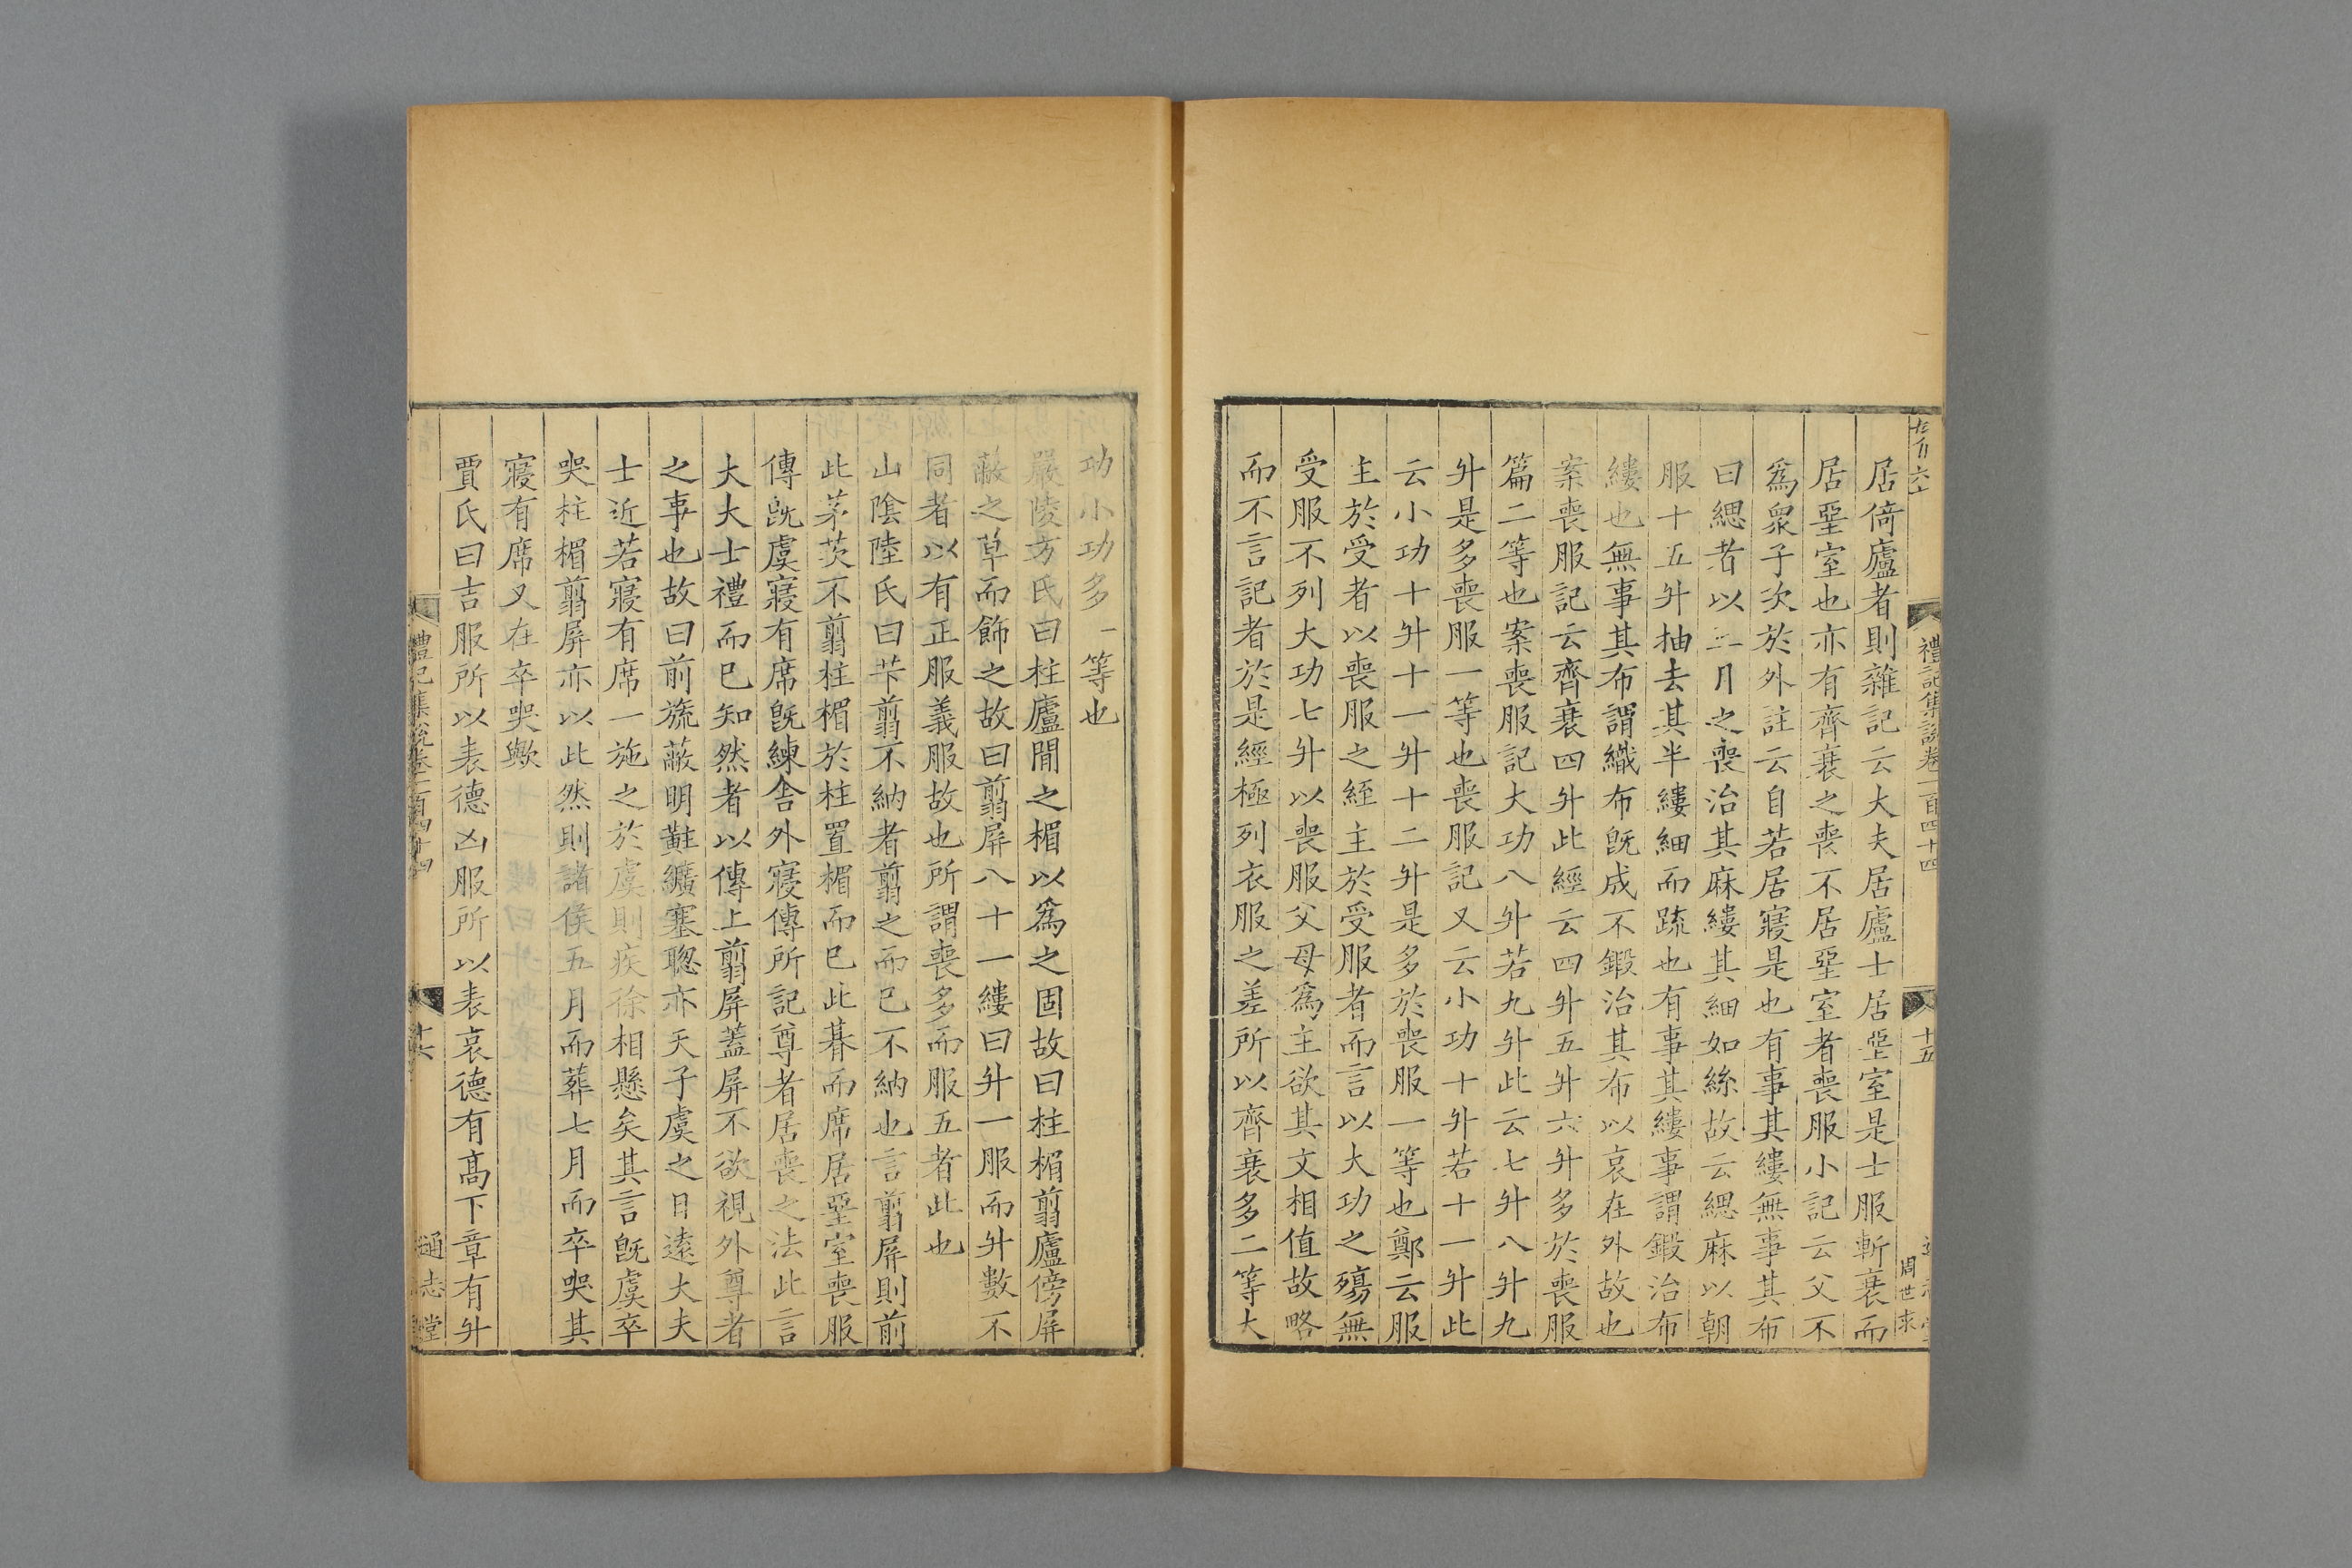 禮記集說卷一百四十四
十五
周世求
居倚廬者則雜記云大夫居廬士居堊室是士服斬衰而
居堊室也亦有齊衰之喪不居堊室者喪服小記云父不
爲衆子次於外註云自若居寢是也有事其縷無事其布
曰緦者以三月之喪治其麻縷其細如絲故云緦麻以朝
服十五升抽去其半縷細而疏也有事其縷事謂鍛治布
縷也無事其布謂織布旣成不鍛治其布以哀在外故也
案喪服記云齊衰四升此經云四升五升六升多於喪服
篇二等也案喪服記大功八升若九升此云七升八升九
升是多喪服一等也喪服記又云小功十升若十一升此
云小功十升十一升十二升是多於喪服一等也鄭云服
主於受者以喪服之絰主於受服者而言以大功之殤無
受服不列大功七升以喪服父母爲主欲其文相值故略
而不言記者於是經極列衣服之差所以齊衰多二等大
功小功多一等也
嚴陵方氏曰柱廬閒之楣以爲之固故曰柱楣翦廬傍屏
蔽之草而飾之故曰翦屏八十一縷曰升一服而升數不
同者以有正服義服故也所謂喪多而服五者此也
山陰陸氏曰芐翦不納者翦之而已不納也言翦屏則前
此茅茨不翦柱楣於柱置楣而已此朞而席居堊室喪服
傳旣虞寢有席旣練舍外寢傳所記尊者居喪之法此言
大夫士禮而已知然者以傳上翦屏蓋屏不欲視外尊者
之事也故曰前旒蔽明黈纊塞聦亦天子虞之日遠大夫
士近若寢有席一施之於虞則疾徐相懸矣其言旣虞卒
哭柱楣翦屏亦以此然則諸侯五月而葬七月而卒哭其
寢有席又在卒哭歟
賈氏曰吉服所以表德凶服所以表哀德有高下章有升
禮記集說卷一百四十四
十六
通志堂